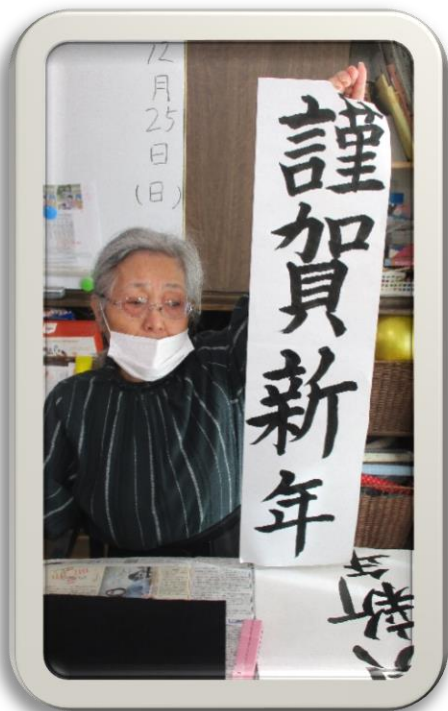 12
月
25
日
(日)
謹賀新年
新年